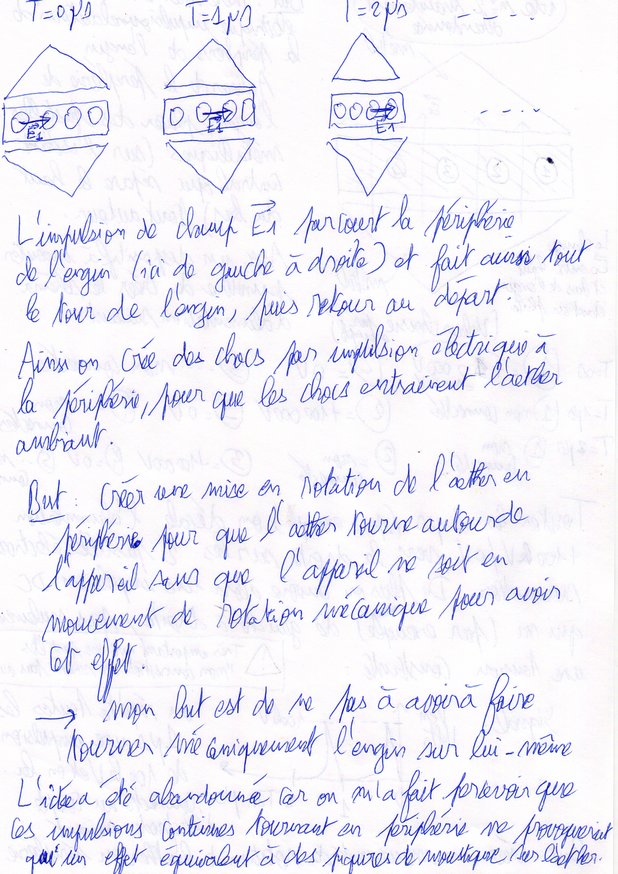 T=0µs T=1µs T=2µs
E1 E1 E1
L'impulsion de champ E1 parcourt la périphérie
de l'engin (ici de gauche à droite) et fait aussi tout
le tour de l'engin, puis retour au départ.
Ainsi on crée des chocs par impulsion électrique à
la périphérie, pour que les chocs entrainent l'aether
ambiant.
But : Créer une mise en rotation de l'aether en
périphérie pour que l'aether tourne autour de
l'appareil sans que l'appareil ne soit en
mouvement de rotation mécanique pour avoir
cet effet.
→ mon but est de ne pas à avoir à faire
tourner mécaniquement l'engin sur lui-même
L'idée a été abandonnée car on m'a fait percevoir que
ces impulsions continues tournant en périphérie ne provoqueraient
qu'un effet équivalent à des piqures de moustique sur l'aether.